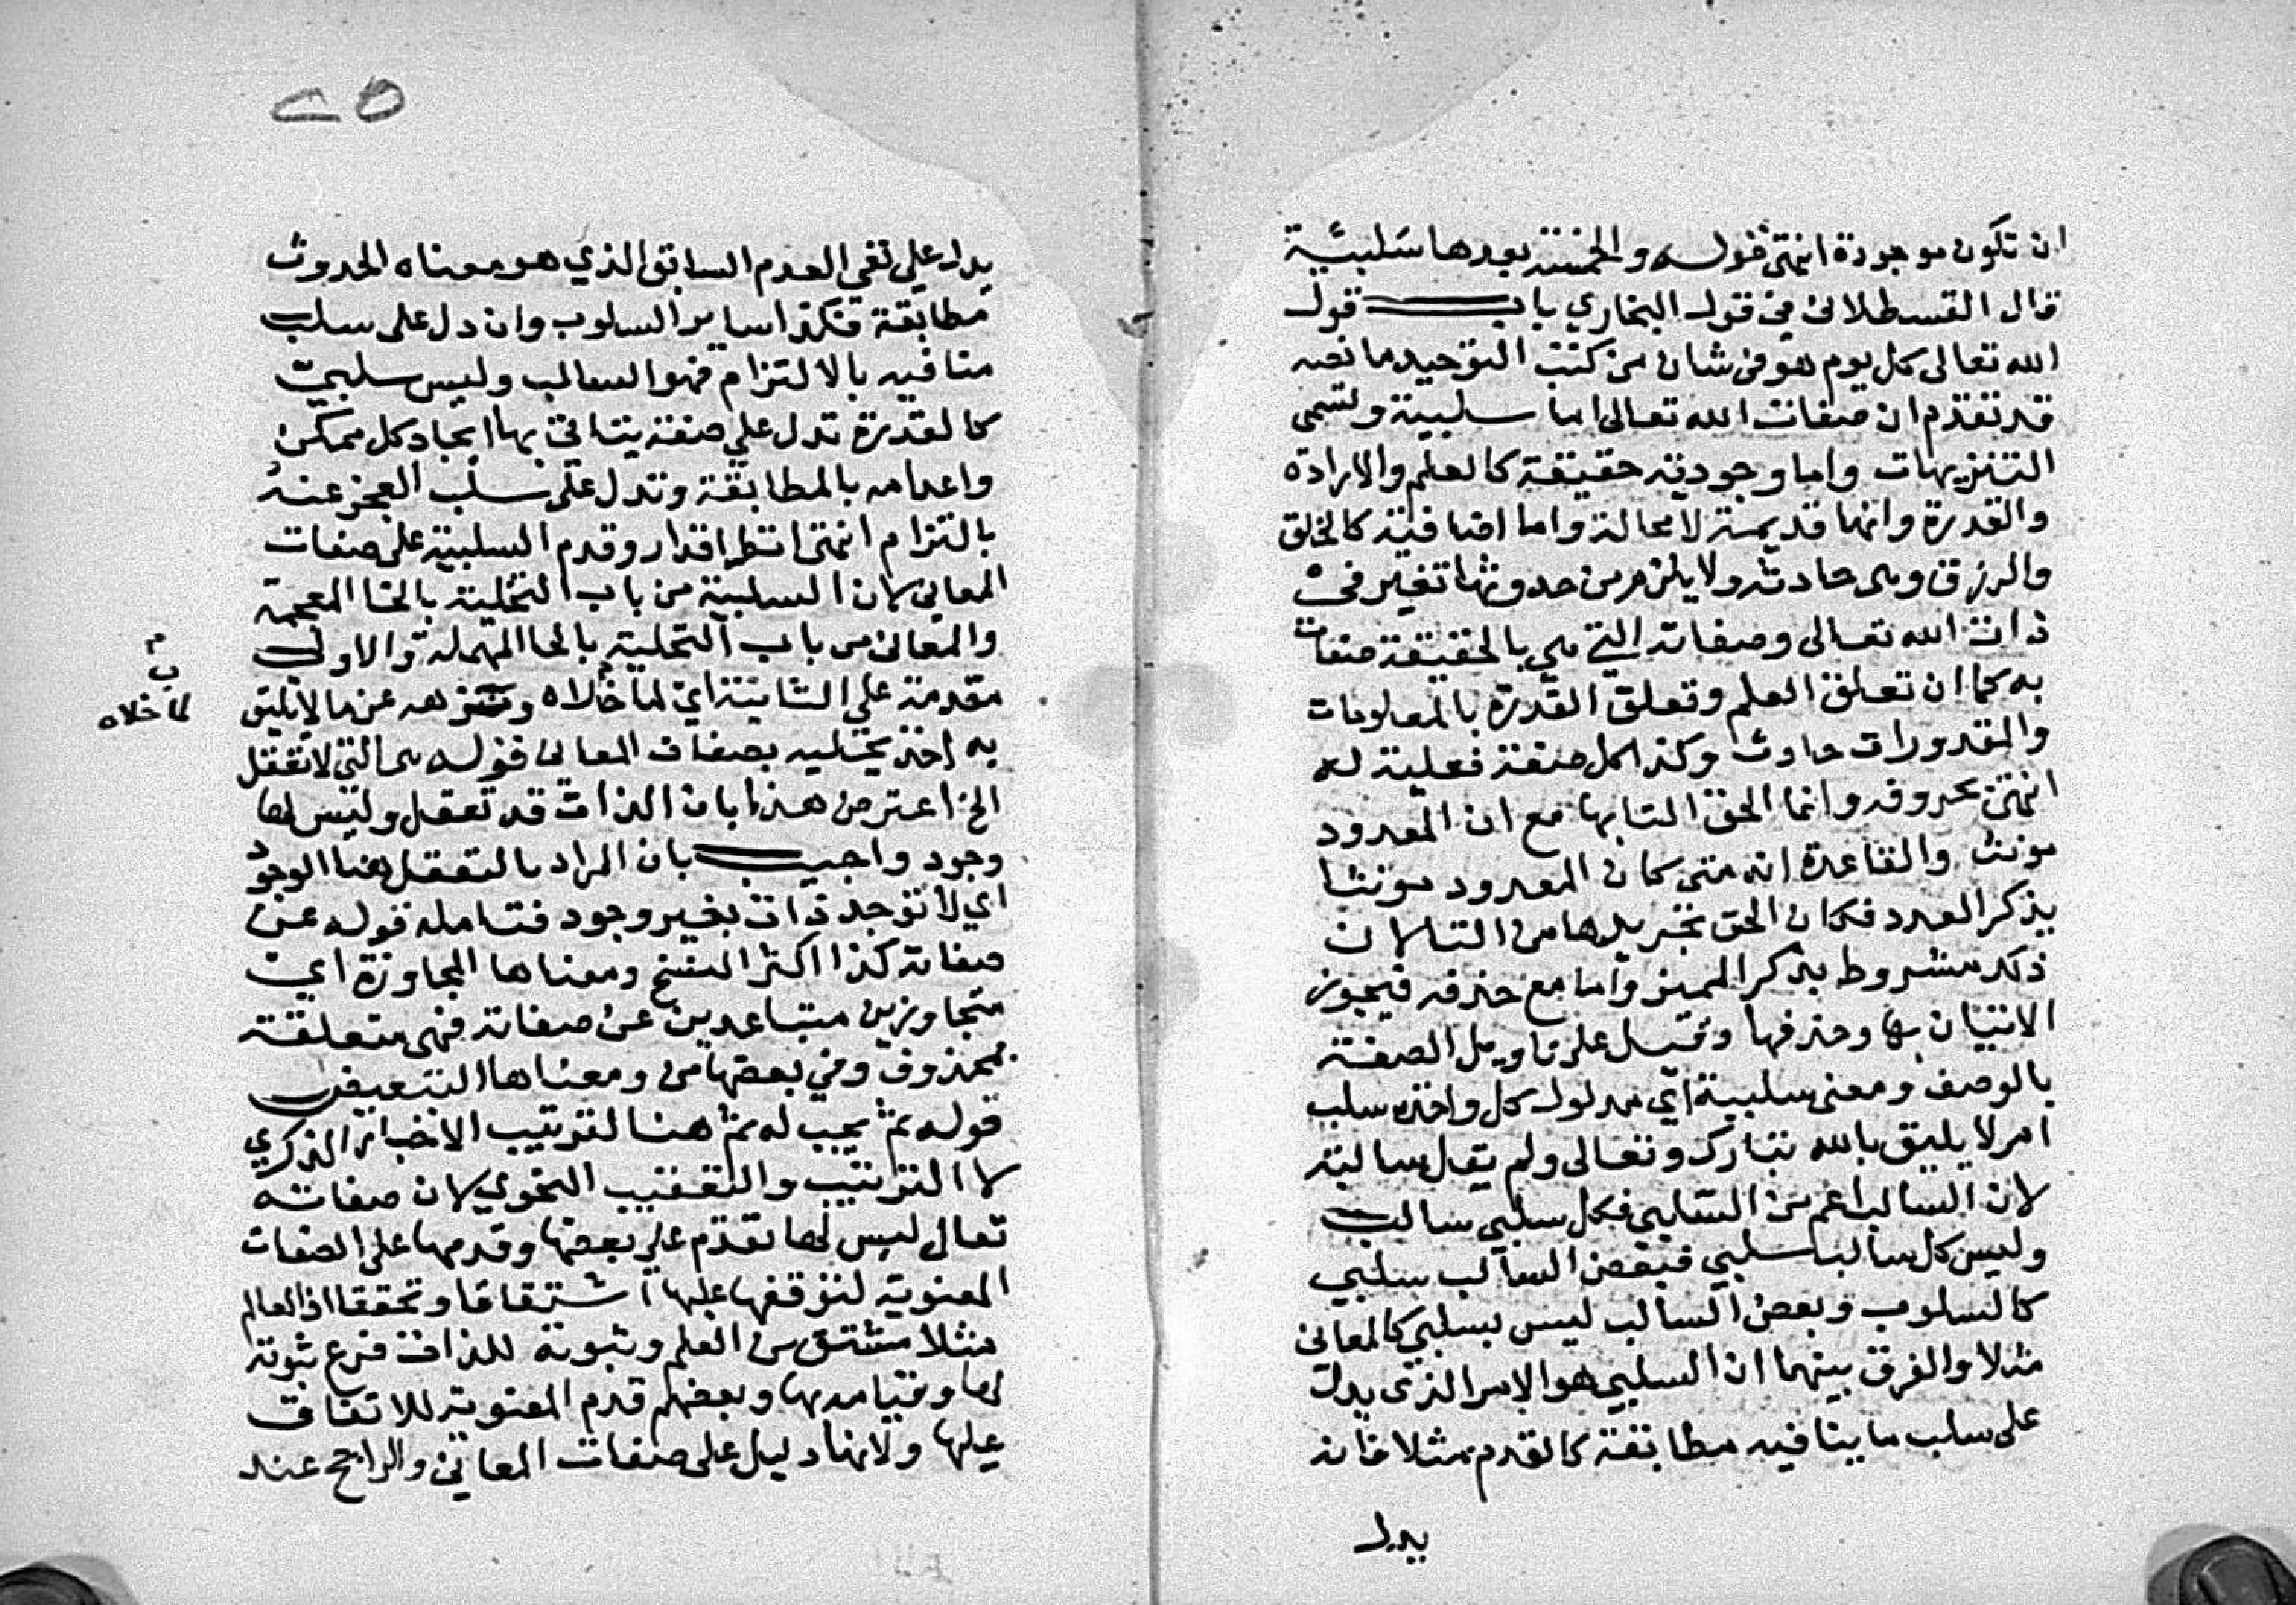 ان تكون موجودة انتهى قوله والخمسة بعدها سلبية
قال القسطلاني في قول البخاري باب قول
الله تعالى كل يوم هو في شان من كتب التوحيد ما نصه
قد تقدم ان صفات الله تعالى اما سلبية وتسمى
التنزيهات واما وجودية حقيقة كالعلم والارادة
والقدرة وانها قديمة لا محالة واما اضافية كالخلق
والرزق وهى حادثة ولا يلزم من حدوثها تغير في
ذات الله تعالى وصفاته التي هي بالحقيقة صفات
به كما ان تعلق العلم وتعلق القدرة بالمعلومات
والمقدورات حادث وكذا كل صفة فعلية له
انتهى بحروفه وانما الحق التا بها مع ان المعدود
مونث والقاعدة انه متى كان المعدود مونثا
يذكر العدد فكان الحق تجريدها من التا لان
ذلك مشروط بذكر المميز واما مع حذفه فيجوز
الاتيان بها وحذفها وقيل على تاويل الصفة
بالوصف ومعنى سلبية اي مدلول كل واحدة سلب
امر لا يليق بالله تبارك وتعالى ولم يقل سالبة
لان السالب اعم من السلبي فكل سلبي سالب
وليس كل سالب سلبي فبعض السالب سلبي
كالسلوب وبعض السالب ليس بسلبي كالمعاني
مثلا والفرق بينهما ان السلبي هو الامر الذي يدل
على سلب ما ينافيه مطابقة كالقدم مثلا فانه
يدل
٢٥
يدل على نفي العدم السابق الذي هو معناه الحدوث
مطابقة وكذا ساير السلوب وان دل على سلب
منافيه بالالتزام فهو السالب وليس سلبي
كالقدرة تدل على صفة يتاتى بها ايجاد كل ممكن
واعدامه بالمطابقة وتدل على سلب العجز عنه
بالتزام انتهى وقدم السلبية على صفات
المعاني لان السلبية من باب التخلية بالخا المعجمة
والمعاني من باب التحلية بالحا المهملة والاولى
مقدمة على الثانية اي لما خلاه ونزهه عن ما لا يليق
م
ب
لما خلاه
به اخذ يحليه بصفات المعاني قوله هى التي لا تعقل
الخ اعترض هذا بان الذات قد تعقل وليس لها
وجود واجيب بان المراد بالتعقل هنا الوجود
اي لا توجد ذات بغير وجود فتامله قوله عن
صفاته كذا اكثر النسخ ومعناها المجاوزة اي
متجاوزين متباعدين عن صفاته فهى متعلقة
بمحذوف وفي بعضها من ومعناها التبعيض
قوله ثم يجب له ثم هنا لترتيب الاخبار الذكري
لا الترتيب والتعقيب النحوي لان صفاته
تعالى ليس لها تقدم على بعضها وقدمها على الصفات
المعنوية لتوقفها عليها اشتقاقا وتحققا اذ العالم
مثلا مشتق من العلم وثبوته للذات فرع ثبوته
لها وقيامه بها وبعضهم قدم المعنوية للاتفاق
عليها ولانها دليل على صفات المعاني والراجح عند